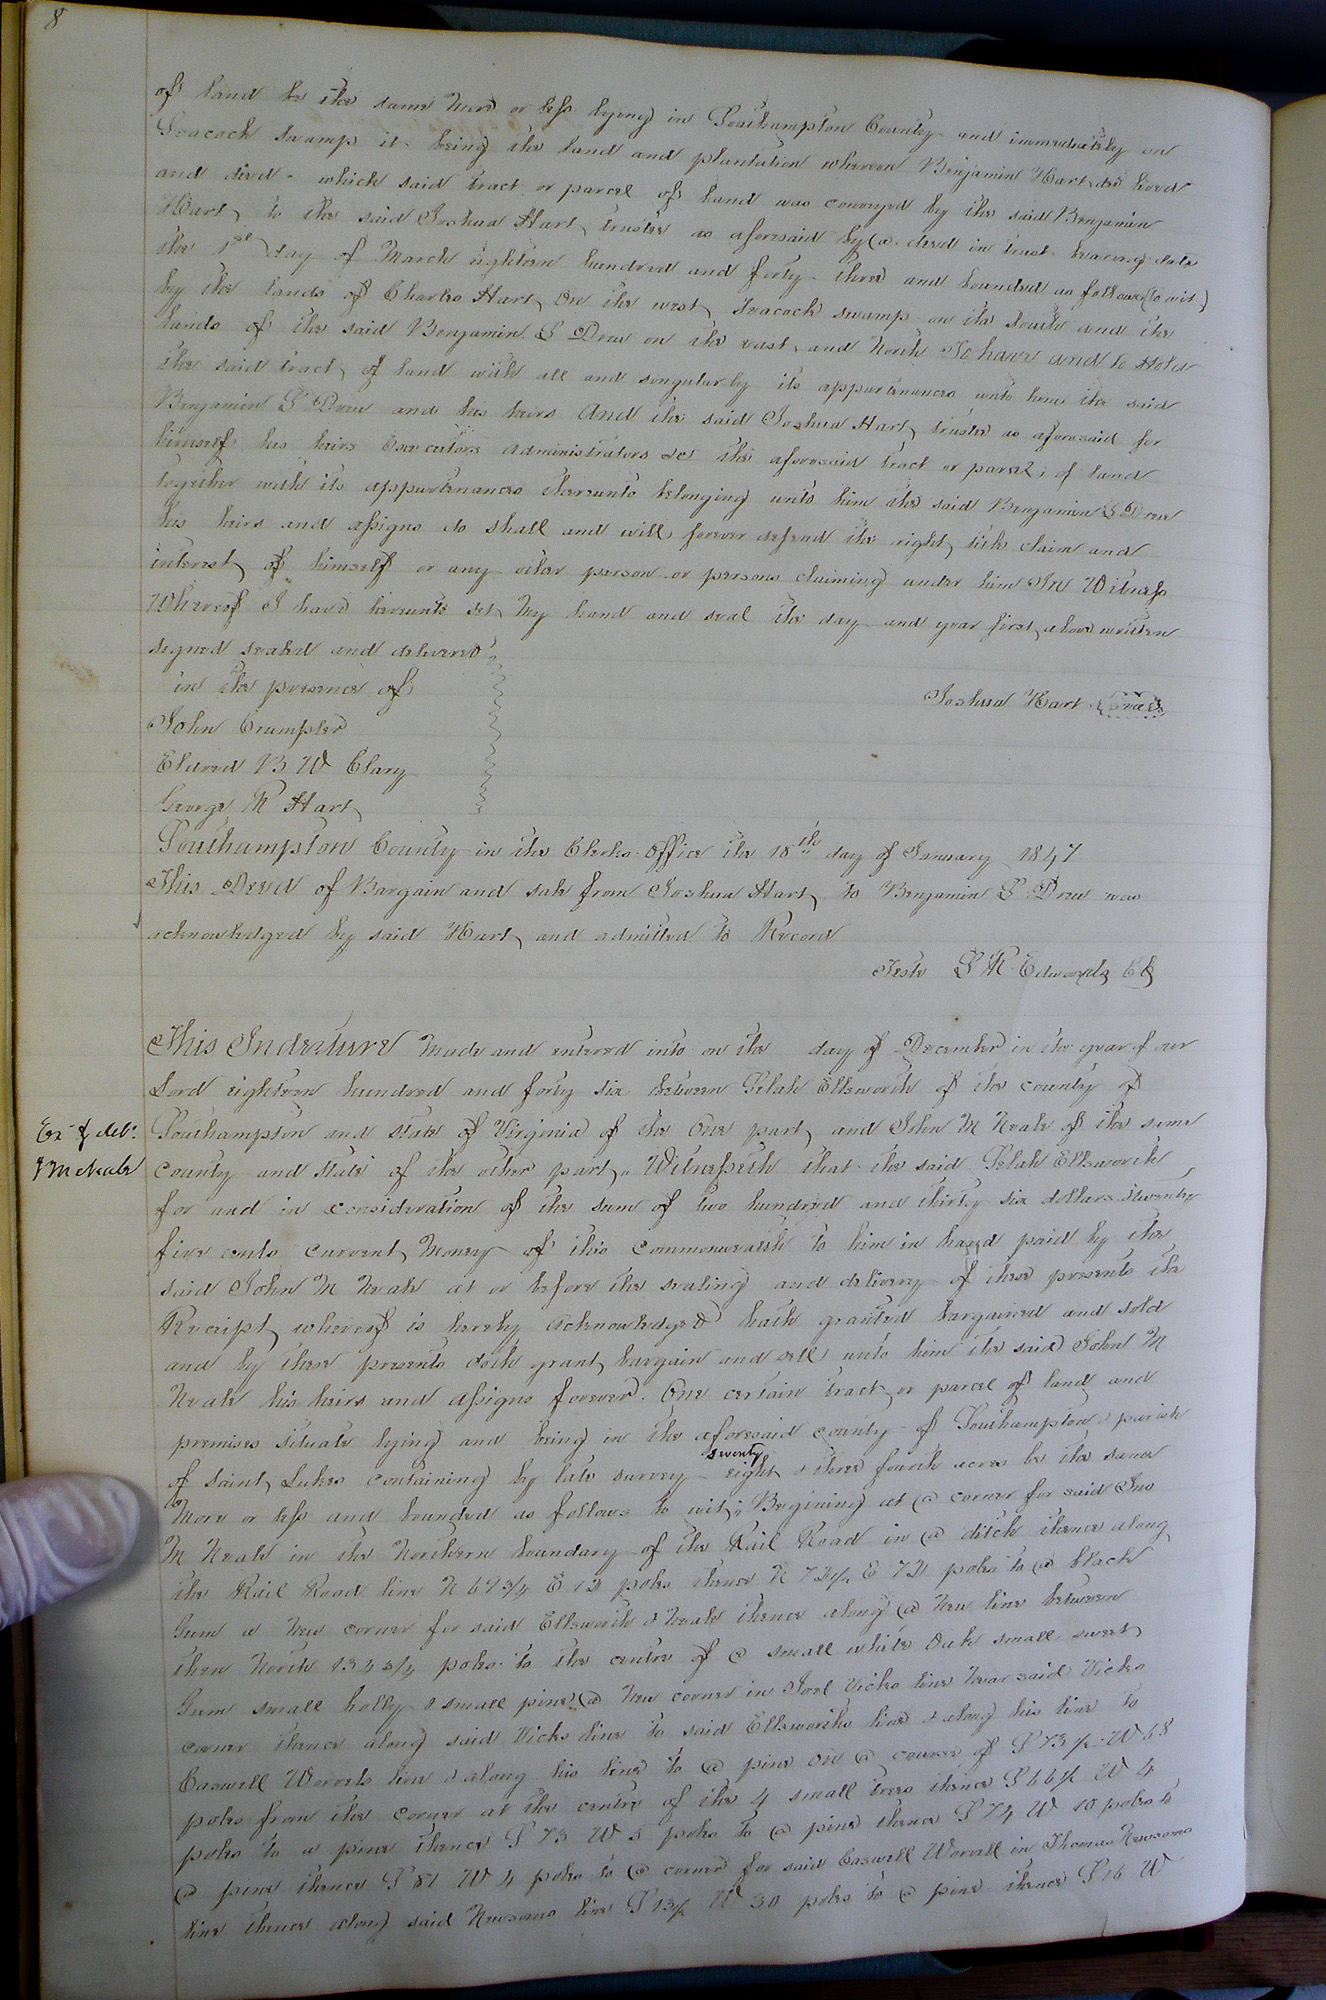 8
of land be the same more or less lying in Southampton County and immediately on
Seacock swamp it being the land and plantation whereon Benjamin Hart decd lived
and died which said tract or parcel of land was conveyed by the said Benjamin
Hart to the said Joshua Hart trustee as aforesaid by a deed in trust bearing date
the 1st day of March eighteen hundred and forty three and bounded as follows (to wit)
by the lands of Charles Hart on the west Seacock swamp on the South and the
lands of the said Benjamin S Drew on the east and North To have and to Hold
the said tract of land with all and singularly its appurtenances unto him the said
Benjamin S Drew and his heirs And the said Joshua Hart trustee as aforesaid for
himself his heirs Executors administrators &c the aforesaid tract or parcel of land
together with its appurtenances thereunto belonging unto him the said Benjamin S Drew
his heirs and assigns do shall and will forever defend the right title claim and
interest of himself or any other person or persons claiming under him In Witness
Whereof I have hereunto set my hand and seal the day and year first above written
signed sealed and delivered
in the presence of
Joshua Hart (seal)
John Crumpler
Elwood B W Clary
George R Hart
Southampton County in the Clerks Office the 18th day of January 1847
This Deed of Bargain and sale from Joshua Hart to Benjamin S Drew was
acknowledged by said Hart and admitted to Record
Teste L R Edwards CC
This Indenture Made and entered into on the day of December in the year of our
Lord eighteen hundred and forty six between Selah Ellsworth of the county of
Exd & deld
J M Neale
Southampton and state of Virginia of the One part and John M Neale of the same
county and state of the other part. Witnesseth that the said Selah Ellsworth
for and in consideration of the sum of two hundred and thirty six dollars twenty
five cents current money of this commonwealth to him in hand paid by the
said John M Neale at or before the sealing and delivery of these presents the
Receipt whereof is hereby acknowledged hath granted bargained and sold
and by these presents doth grant bargain and sell unto him the said John M
Neale his heirs and assigns forever. One certain tract or parcel of land and
premises situate lying and being in the aforesaid county of Southampton & parish
of saint Lukes containing by late survey seventy eight & three fourth acres be the same
More or less and bounded as follows to wit; Begining at a corner for said Jno
M Neale in the Northern boundary of the Rail Road in a ditch thence along
the Rail Road line N 69 3/4 E 12 poles thence N 72 1/2 E 72 poles to a black
Gum a new corner for said Ellsworth & Neale thence along a new line between
them North 134 3/4 poles to the centre of a small white Oak small sweet
Gum small holly & small pine a new corner in Joel Vicks line near said Vicks
corner thence along said Vicks line to said Ellsworths line & along his line to
Caswell Worrels line & along his line to a pine on a course of S 73 1/2 W 68
poles from the corner at the centre of the 4 small trees thence S 66 1/2 W 4
poles to a pine thence S 73 W 5 poles to a pine thence S 74 W 10 poles to
a pine thence S 81 W 4 poles to a corner for said Caswell Worrell in Thomas Newsoms
line thence along said Newsoms line S 13 1/2 W 30 poles to a pine thence S 16 W